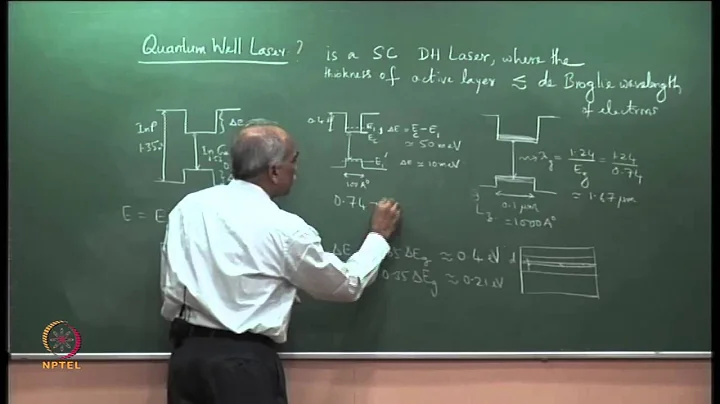 Quantum Well Laser? is a SC DH Laser, where the
thickness of active layer ≲ de Broglie wavelength
of electrons
InP
1.35
ΔE
In Ga
0.4
E₁
E_c
ΔE = E_c - E₁
≈ 50 meV
E₁'
ΔE ≈ 10 meV
100 A°
0.74
⇒ λg = 1.24 / Eg = 1.24 / 0.74
≈ 1.67 μm
0.1 μm
= 1000 A°
E = E
ΔE
ΔEg ≈ 0.4 eV
0.35 ΔEg ≈ 0.21 eV
d
NPTEL